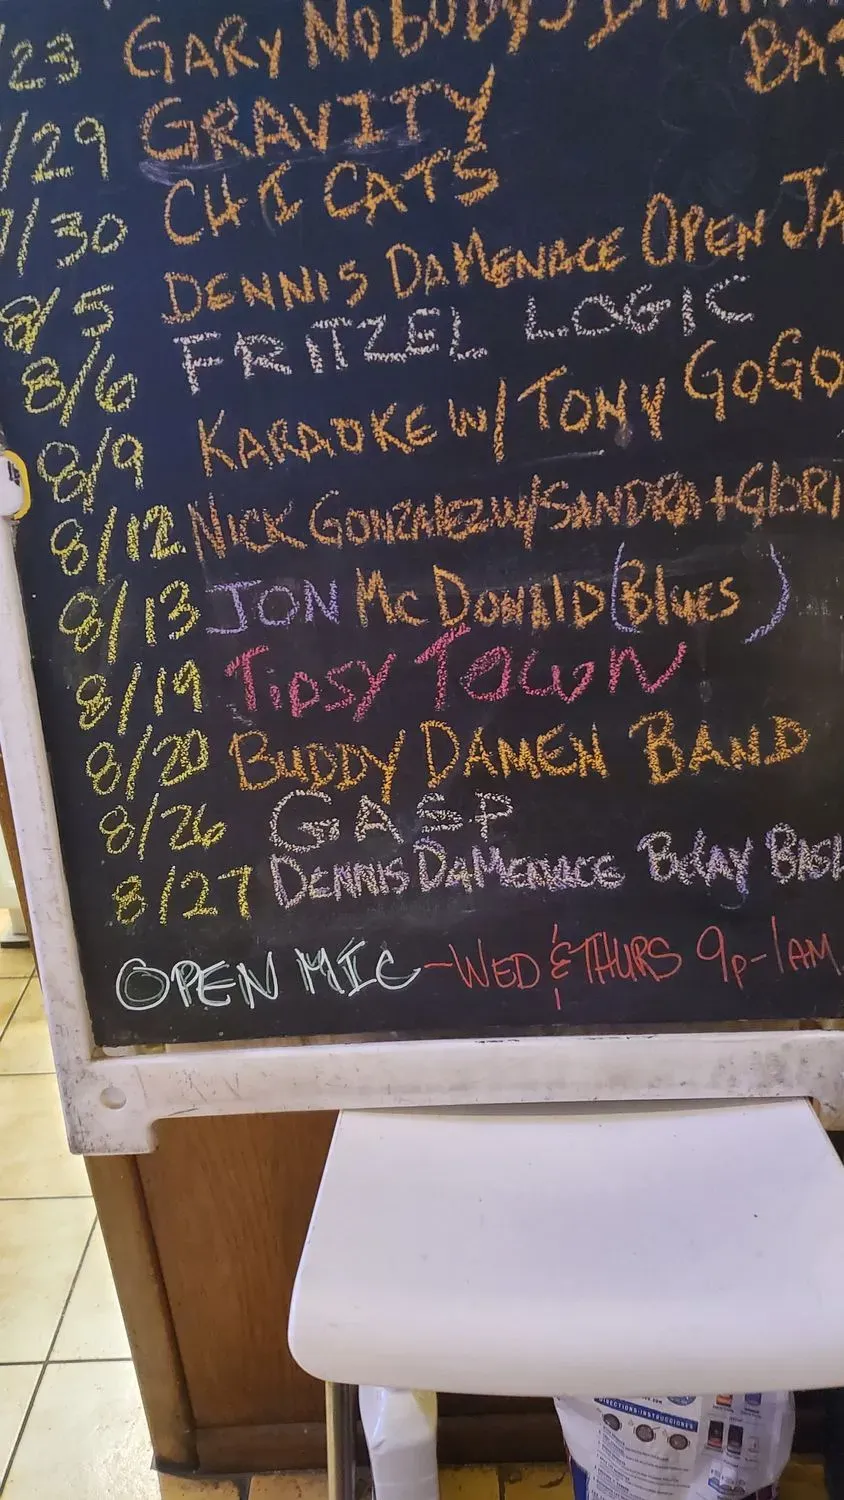 /23 GARY NOBODY'S
BAS
/29 GRAVITY
/30 CHI CATS
8/5 DENNIS DAMENACE OPEN JA
8/6 FRITZEL LOGIC
8/9 KARAOKE W/ TONY GOGO
8/12 NICK GONZALEZ W/ SANDRA + GLORI
8/13 JON McDONALD (Blues)
8/19 TIPSY TOWN
8/20 BUDDY DAMEN BAND
8/26 GASP
8/27 DENNIS DAMENACE BDAY BASH
OPEN MIC - WED & THURS 9p-1AM
DIRECTIONS • INSTRUCCIONES